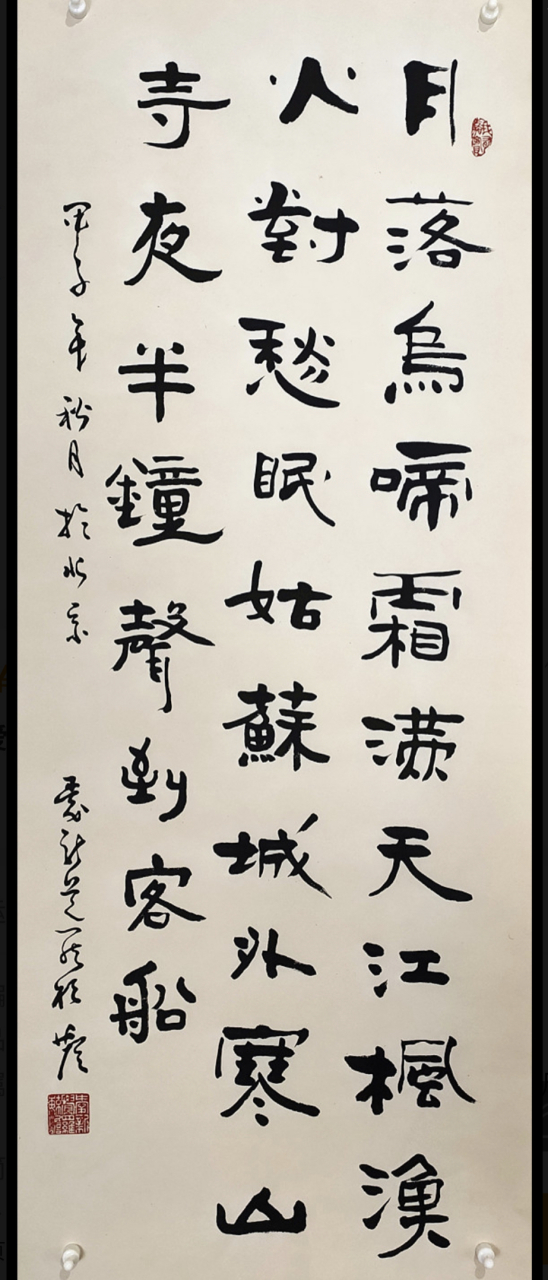 月落烏啼霜滿天江楓漁
火對愁眠姑蘇城外寒山
寺夜半鐘聲到客船
甲子年秋月於北京 愛新覺羅